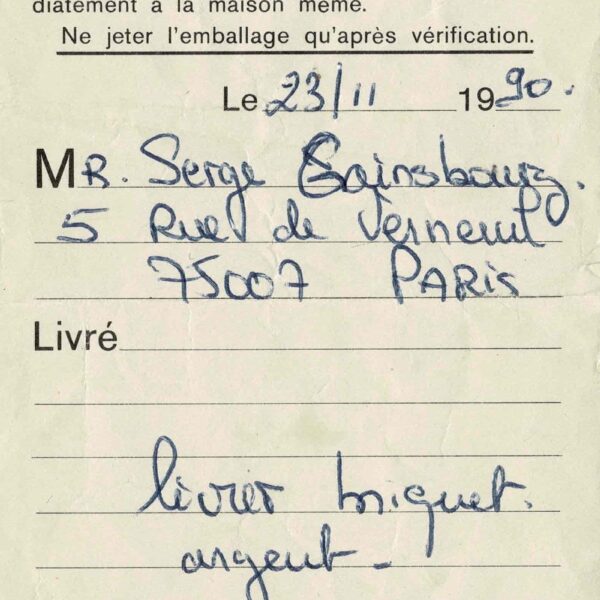 diatement à la maison même.
Ne jeter l'emballage qu'après vérification.
Le 23/11 1990.
MR. Serge Gainsbourg.
5 Rue de Verneuil
75007 PARIS
Livré
livrer briquet.
argent -